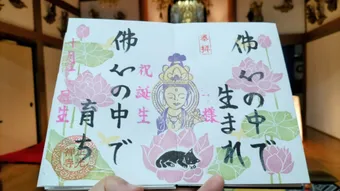 奉拝
佛心の中で
生まれ
様
祝
誕生
佛心の中で
育ち